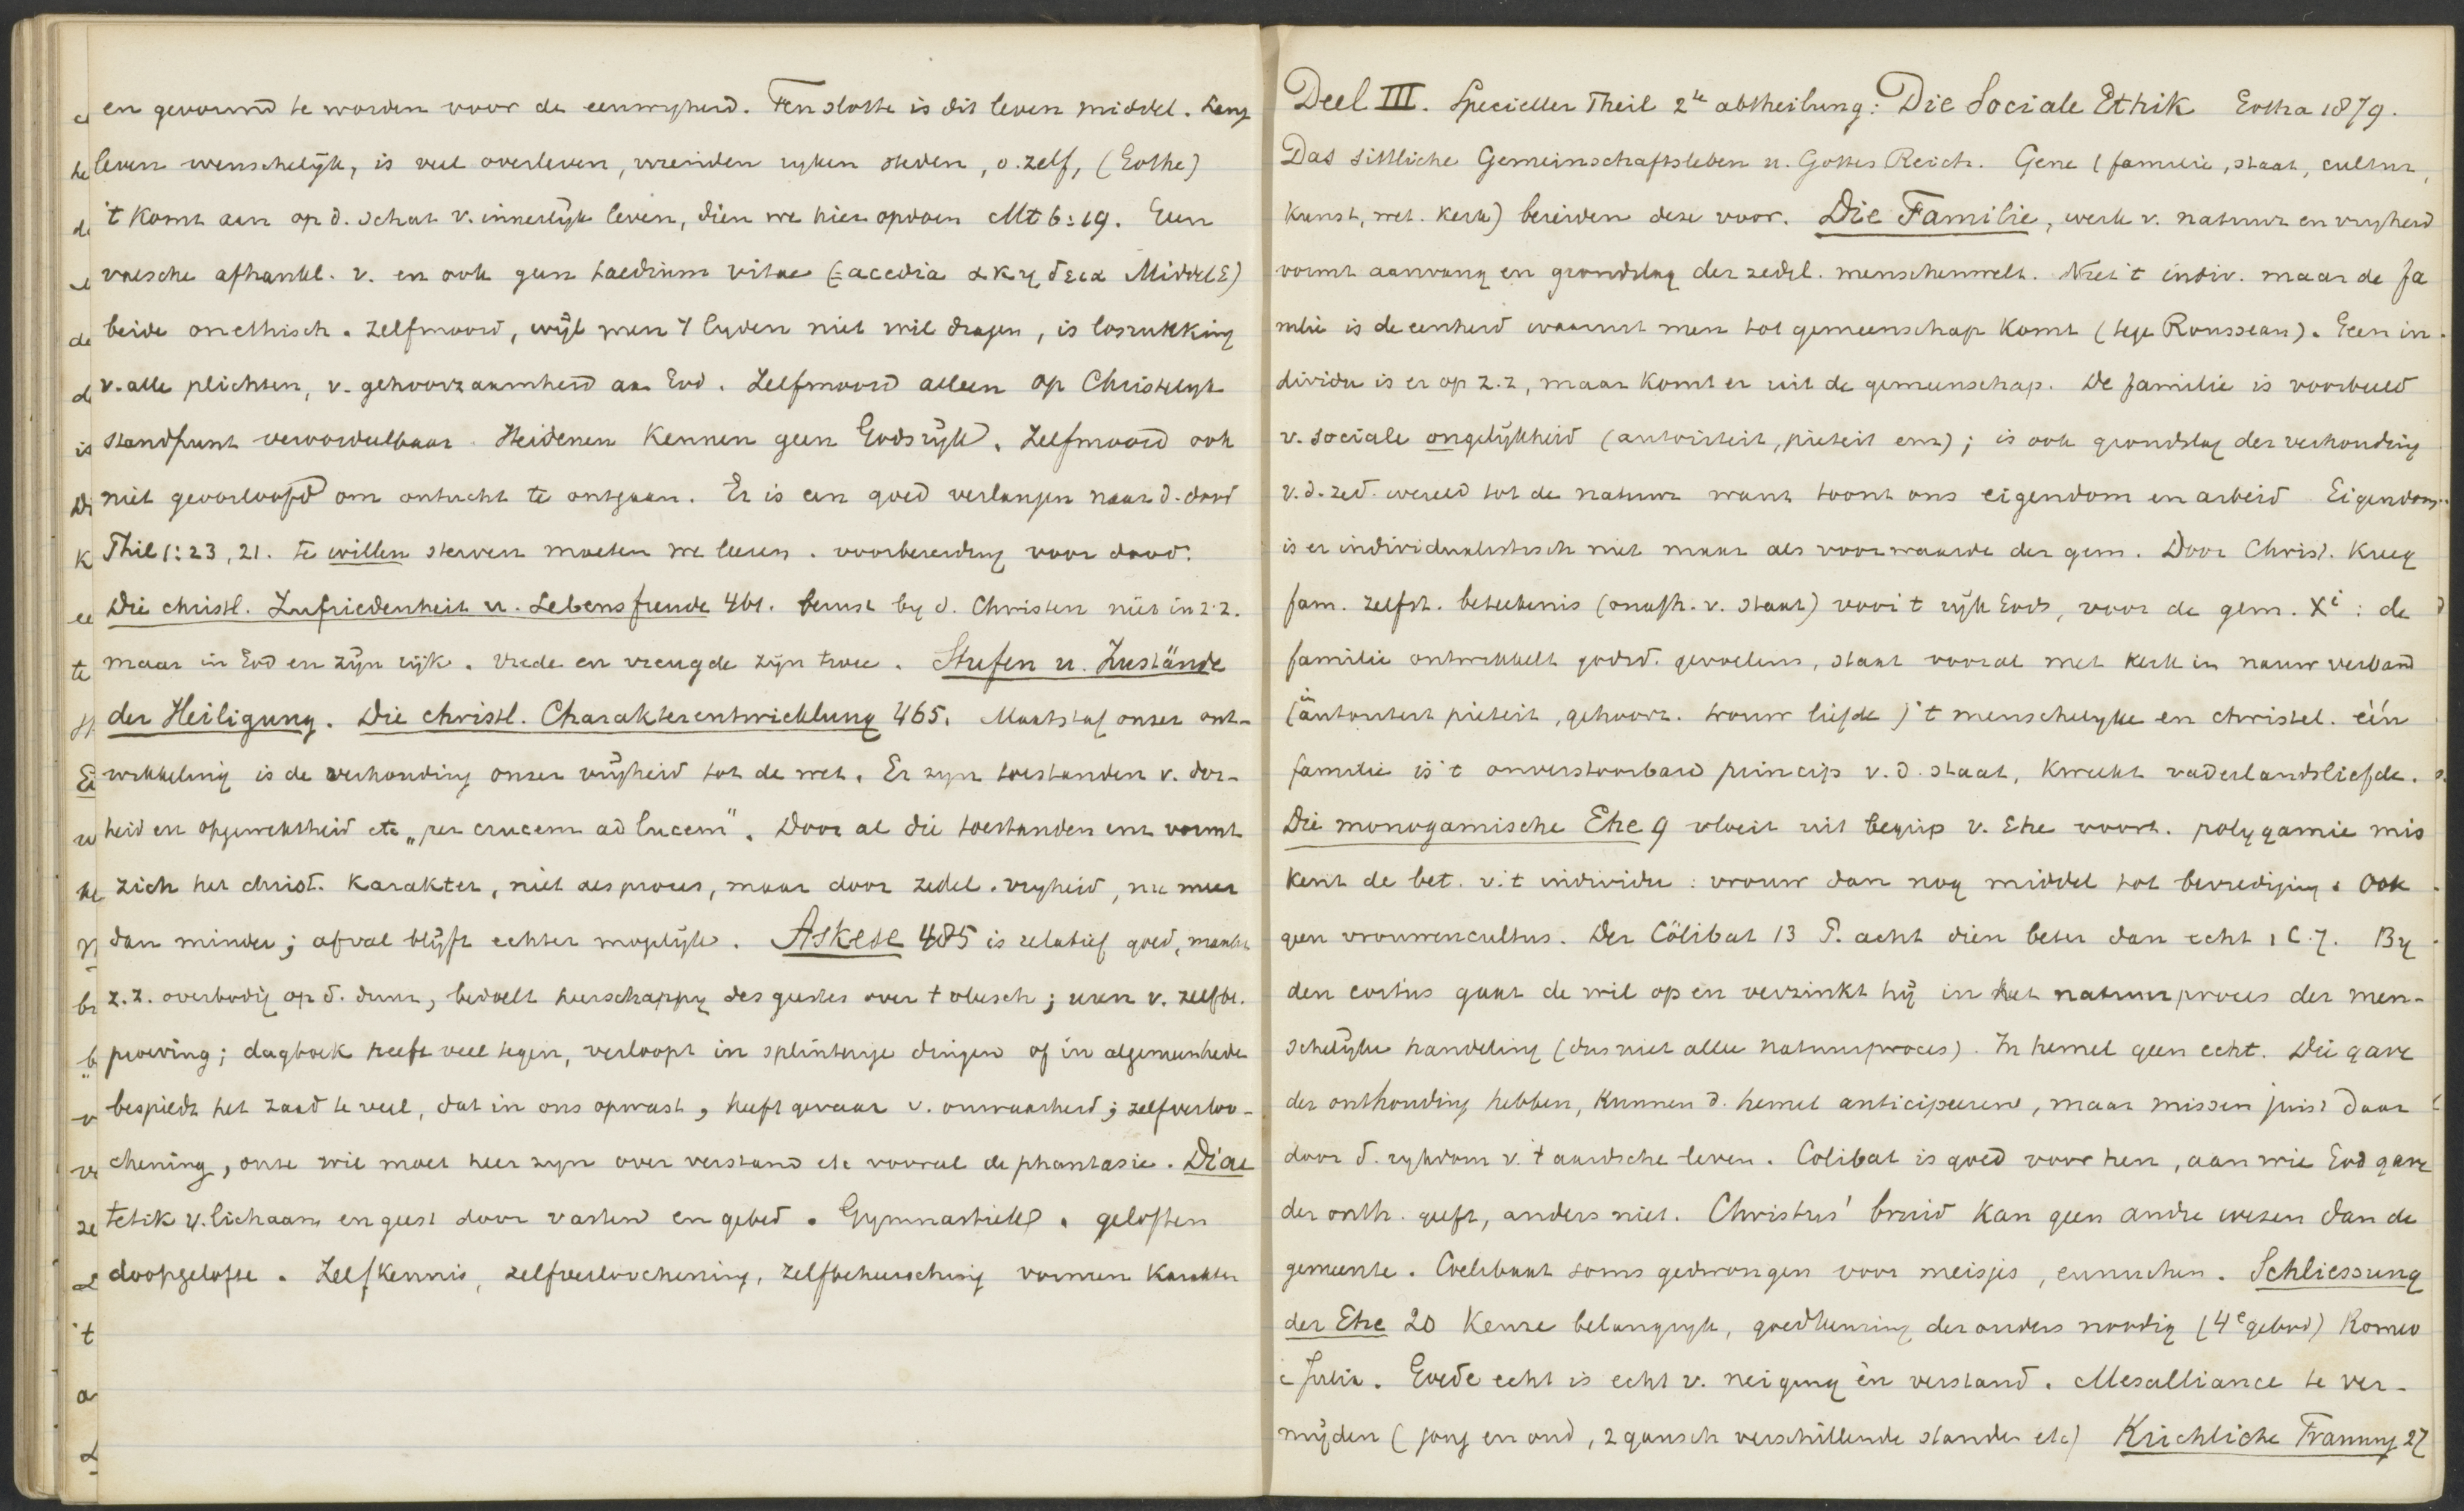 en gevormd te worden voor de eeuwigheid. Ten slotte is dit leven middel. Lang
leven wenschelijk, is veel overleven, vrienden ryken steden, o. zelf, (Göthe)
't komt aan op d. schat v. innerlijk leven, dien we hier opdoen Mt 6:19. Een
valsche afhankl. v. en ook geen taedium vitae (= acedia ακηδεια Middel E)
beide onethisch. Zelfmoord, wijl men 't lyden niet wil dragen, is losrukking
v. alle plichten, v. gehoorzaamheid aan God. Zelfmoord alleen op Christelijk
standpunt veroordeelbaar. Heidenen kennen geen Godsrijk. Zelfmoord ook
niet geoorloofd om ontucht te ontgaan. Er is een goed verlangen naar d. dood
Phil 1:23, 21. te willen sterven moeten we leeren. voorbereiding voor dood.
Die christl. Zufriedenheit u. Lebensfreude 461. berust by d. Christen niet in z.z.
maar in God en zijn rijk. Vrede en vreugde zijn twee. Stufen u. Zustände
der Heiligung. Die christl. Charakterentwicklung 465. Maatstaf onzer ont-
wikkeling is de verhouding onzer vrijheid tot de wet. Er zyn toestanden v. dor-
heid en opgewektheid etc "per crucem ad lucem". Door al die toestanden enz vormt
zich het christ. karakter, niet als proces, maar door zedel. vryheid, nu meer
dan minder; afval blijft echter mogelijk. Askese 485 is relatief goed, maakt
z.z. overbodig op d. duur, bedoelt heerschappy des geestes over 't vleesch; uren v. zelfbe.
proeving; dagboek heeft veel tegen, verloopt in splinterige dingen of in algemeenheden
bespiedt het zaad te veel, dat in ons opwast, heeft gevaar v. onwaarheid; zelfverloo-
chening, onze wil moet heer zyn over verstand etc vooral de phantasie. Diae
tetik v. lichaam en geest door vasten en gebed. Gymnastiek. geloften
doopgelofte. Zelfkennis, zelfverloochening, zelfbeheersching vormen karakter
Deel III. Specieller Theil 2te abtheilung: Die Sociale Ethik Gotha 1879.
Das sittliche Gemeinschaftsleben u. Gottes Reich. Gene (familie, staat, cultuur,
kunst, wet. kerk) bereiden deze voor. Die Familie, werk v. natuur en vryheid
vormt aanvang en grondslag der zedel. menschenwelt. Niet 't indiv. maar de fa
milie is de eenheid waaruit men tot gemeenschap komt (tege Rousseau). Geen in-
dividu is er op z.z, maar komt er uit de gemeenschap. De familie is voorbeeld
v. sociale ongelijkheid (autoriteit, pieteit enz); is ook grondslag der verhouding
v. d. zed. wereld tot de natuur want toont ons eigendom en arbeid. Eigendom
is er individualistisch niet maar als voorwaarde der gem. Door Christ. kreeg
fam. zelfst. beteekenis (onafh. v. staat) voor 't rijk Gods, voor de gem. Xi: de
familie ontwikkelt godsd. gevoelens, staat vooral met kerk in nauw verband
(in autoriteit pieteit, gehoorz. trouw liefde) 't menschelyke en christel. één
familie is 't onverstoorbare princip v. d. staat, kweekt vaderlandsliefde.
Die monogamische Ehe 9 vloeit uit begrip v. Ehe voort. polygamie mis
kent de bet. v. 't individu: vrouw dan nog middel tot bevrediging. Ook
geen vrouwencultus. Der Cölibat 13 P. acht dien beter dan echt 1 C. 7. By
den coitus gaat de wil op en verzinkt hij in het natuurproces der men-
schelijke handeling (dus niet alleen natuurproces). In hemel geen echt. Die gave
der onthouding hebben, kunnen d. hemel anticipeeren, maar missen juist daar
door d. rykdom v. 't aardsche leven. Colibat is goed voor hen, aan wie God gave
der onth. geeft, anders niet. Christus' bruid kan geen andre wezen dan de
gemeente. Coelibaat soms gedwongen voor meisjes, eunuchen. Schliessung
der Ehe 20 Keuze belangryk, goedkeuring der ouders noodig (4e gebod) Romeo
e Julia. Goede echt is echt v. neiging èn verstand. Mesalliance te ver-
mijden (jong en oud, 2 gansch verschillende standen etc) Kirchliche Trauung 27